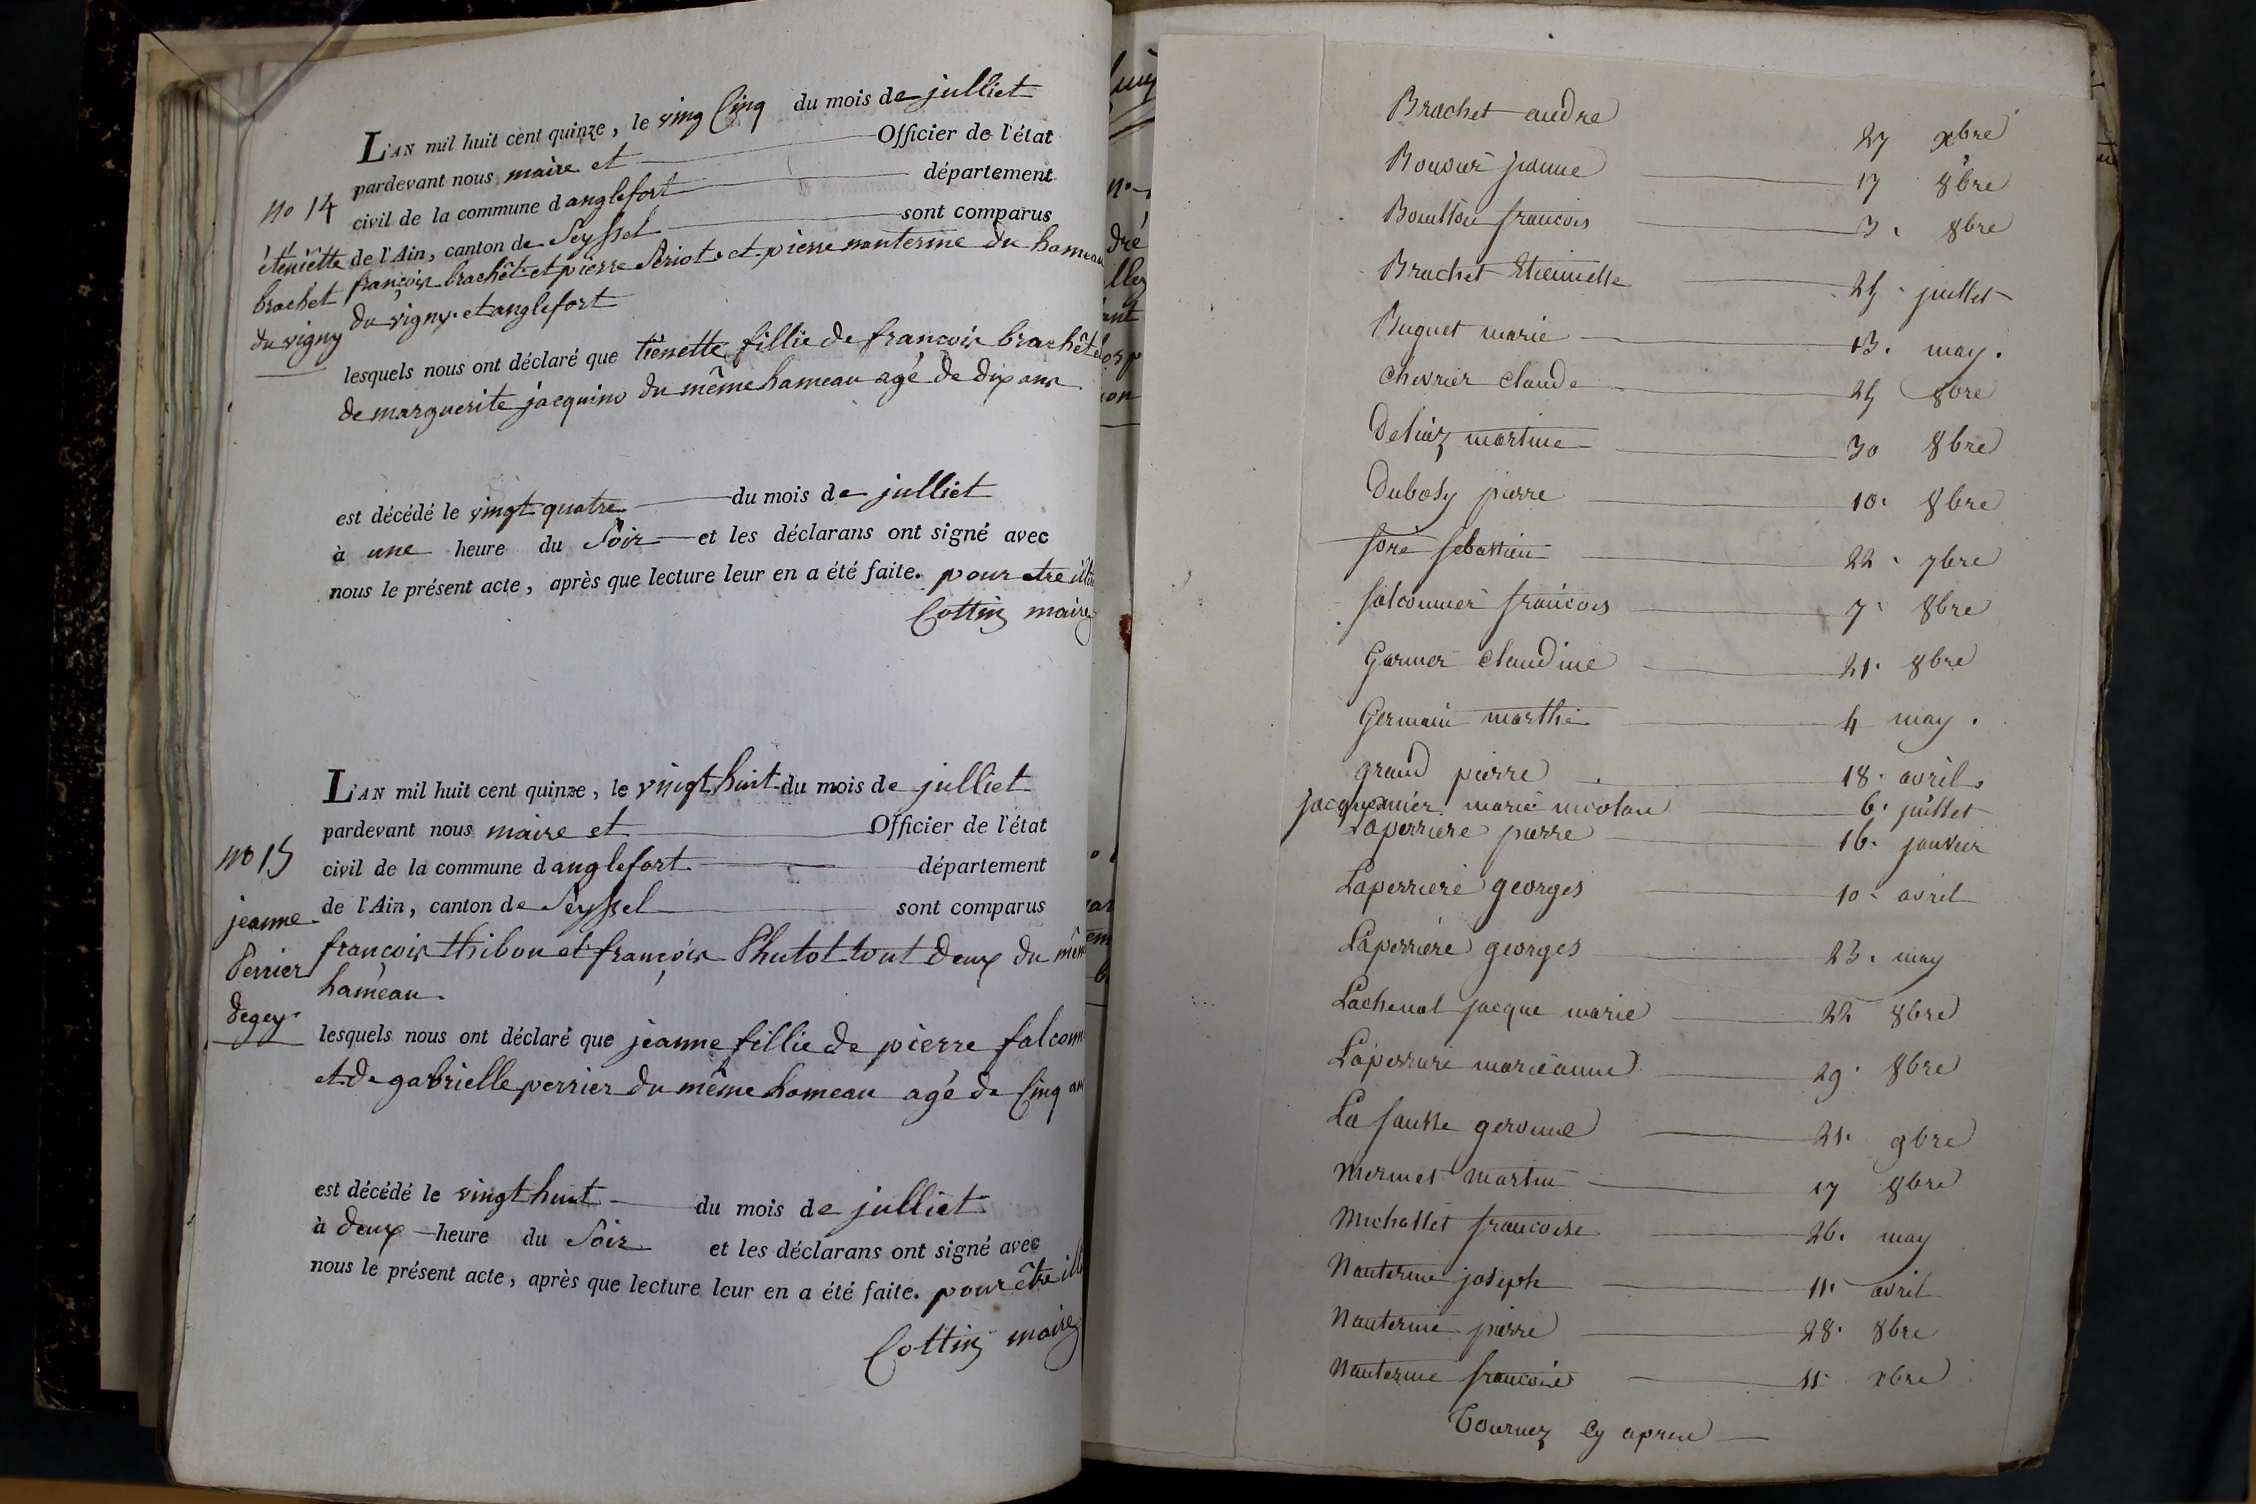 L'AN mil huit cent quinze, le ving Cinq du mois de julliet
pardevant nous maire et Officier de l'état
civil de la commune d'anglefort département
de l'Ain, canton de Seyssel sont comparus
françois brachêt et pierre et pierre nanterme du hameau
du vigny et anglefort
no 14
éteniètte
brachet
du vigny
lesquels nous ont déclaré que tiènette fillie de françois brachêt
de marguerite jacquino du même hameau agé de dix ans
est décédé le vingt quatre du mois de julliet
à une heure du Soir et les déclarans ont signé avec
nous le présent acte, après que lecture leur en a été faite. pour etre
Cottin maire
L'AN mil huit cent quinze, le vingt huit du mois de julliet
pardevant nous maire et Officier de l'état
civil de la commune d'anglefort département
de l'Ain, canton de Seyssel sont comparus
françois thibou et françois Phutot tout deux du mêm
hameau
no 15
jeanne
Perrier
degey
lesquels nous ont déclaré que jeanne fillie de pierre falconn
et de gabrielle perrier du même hameau agé de Cinq an
est décédé le vingt huit du mois de julliet
à deux heure du Soir et les déclarans ont signé avec
nous le présent acte, après que lecture leur en a été faite. pour être ill
Cottin maire
Brachet andre 27 xbre
17 8bre
Bouillon francois 3. 8bre
Brachet Etiennette 25 juillet
Buguet marie 13. may.
Chevrier claude 25 8bre
Deliaz martine 30 8bre
Dubosy pierre 10. 8bre
foré sebastien 22. 7bre
falconnier francois 7. 8bre
Garnier claudine 21. 8bre
Germain marthe 4 may.
grand pierre 18. avril.
jacquemier marie nicolau 6. juillet
Laperriere pierre 16. janvier
Laperriere georges 10. avril
Laperriere georges 23. may
Lachenal jacque marie 22 8bre
Laperriere marieanne 29. 8bre
La fausse 21. 9bre
mermet martin 17 8bre
michallet francoise 26. may
Nanterme joseph 11. avril
Nanterme pierre 28. 8bre
Nanterme francoise 11 xbre
Tournez Cy apres